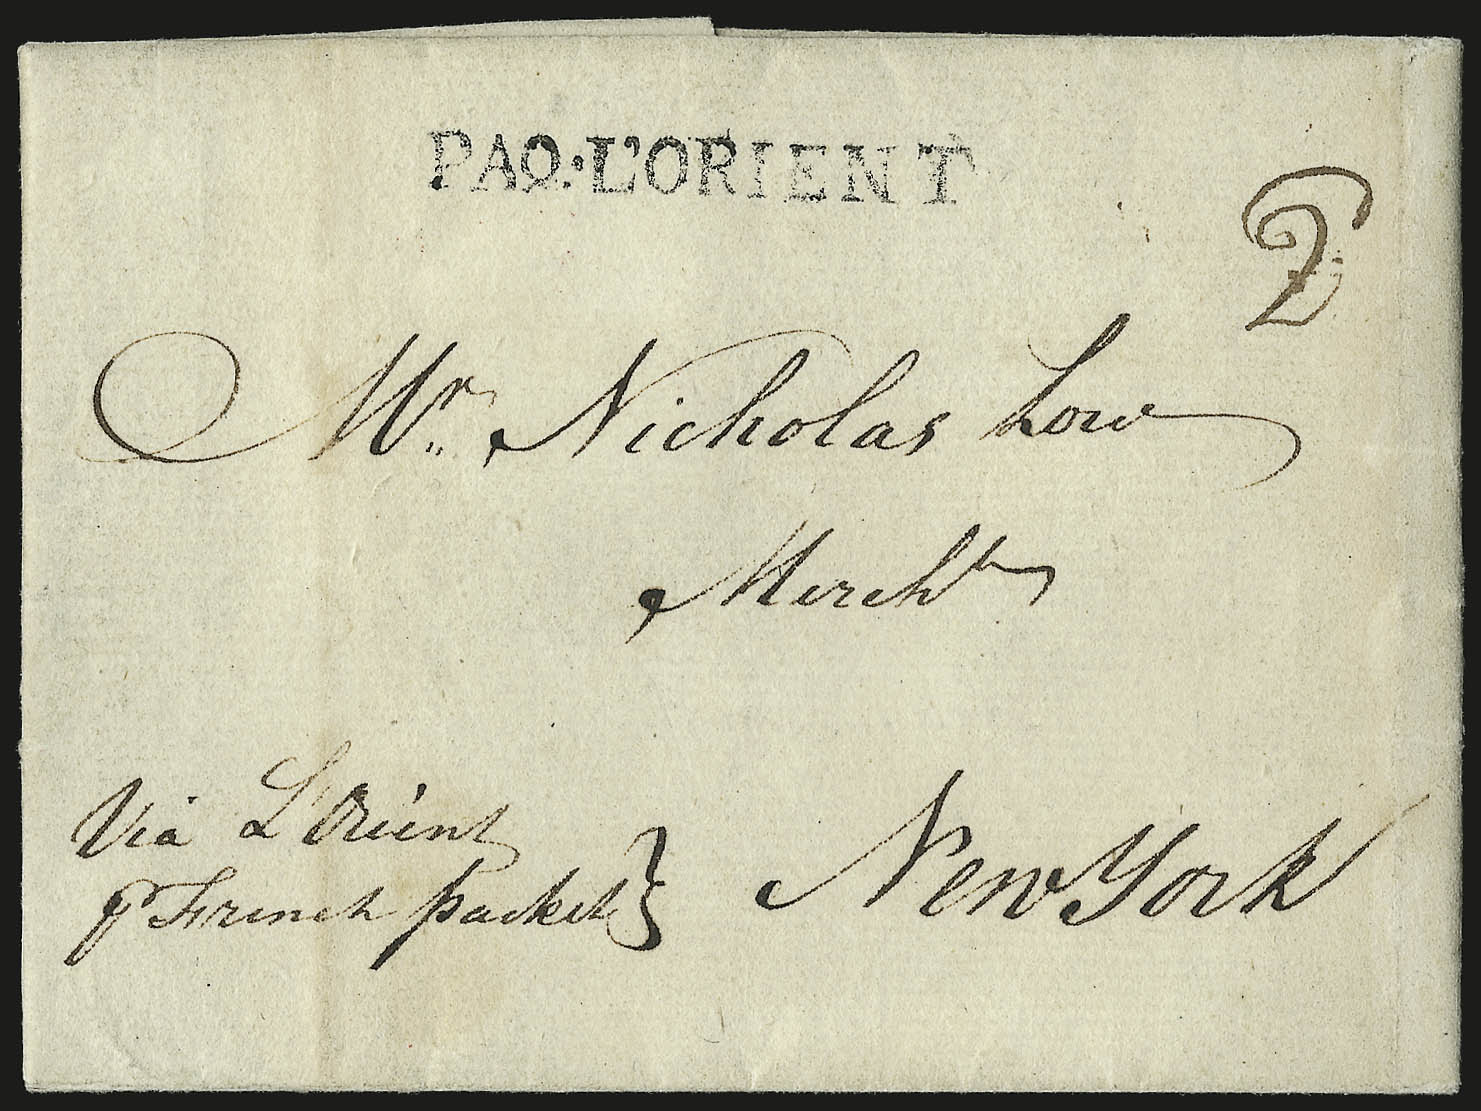 PAQ·L'ORIENT
2
Mr. Nicholas Low
Mercht
Via L'Orient
pr French packet
New York